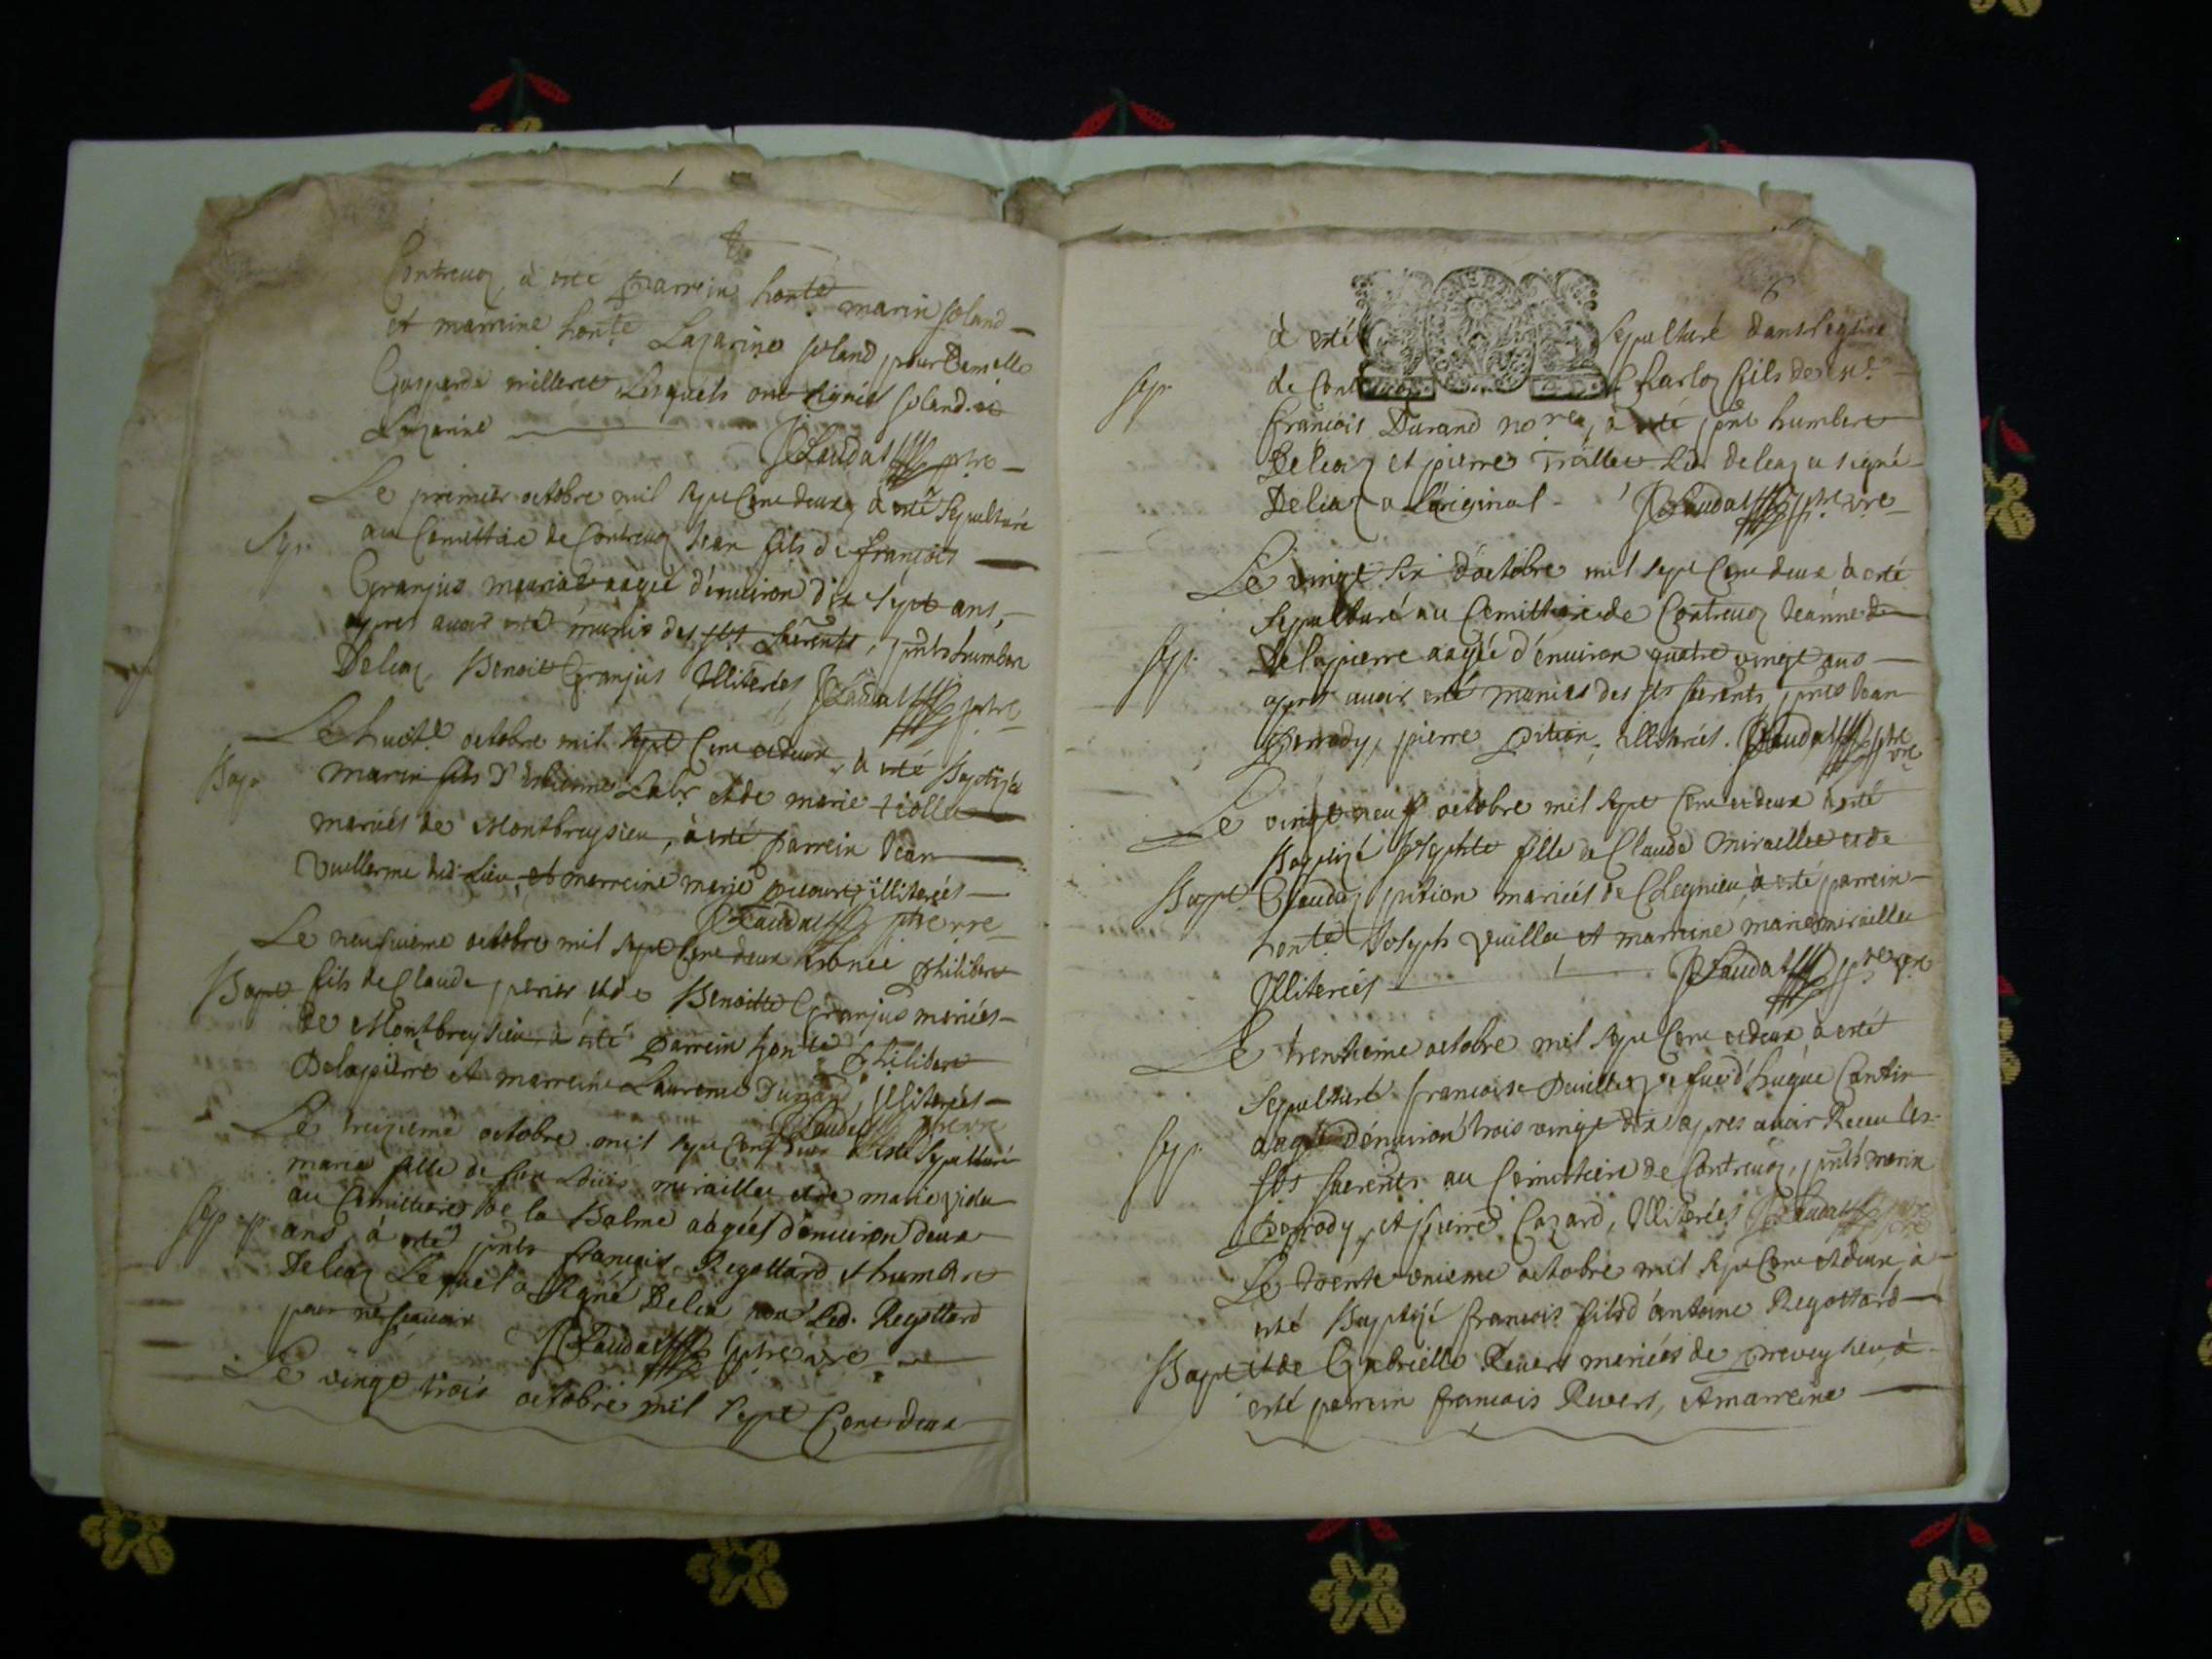 Contreuoz, à esté parrein honte marin foland
et marreine honte Lazarine foland pour Demelle
Gasparde milleret Lesquels ont signés foland. et
Lazarine
JClaudat ptre
Le premier octobre mil sept Cent deux, à esté sepulturé
Sep. au Cemittaire de Contreuoz Jean fils de françois
Granjus mariat aagée d'énuiron dix sept ans,
apres auoir esté munis des sts sacrents, pnts humbert
Deleaz, Benoit Granjus Illiterées, JClaudat ptre
Le huite octobre mil sept Cent et deux, à esté Baptizé
Bap. marin fils d'Estienne Labr et de marie
mariés de Montbreysieu, à esté parrein Jean
Vuillerme dud. Lieu, et marreine marie illiterées
JClaudat ptre vre
Le neufuieme octobre mil sept Cent deux philibert
Bapt fils de Claude perier et de Benoitte Granjus mariés
de Montbreysieu à esté parrein honte philibert
Delapierre et marreine Laurence Durand, Illiterées
JClaudat ptre vre
Le treizieme octobre mil sept Cent deux à esté sepulturé
marie fille de feu Louis miraillet et de marie
Sep. au Cemittaire de la Balme aagées d'enuiron deux
ans, à esté pnts françois Regottard et humbert
Deleaz Lequel a signé Deleaz non Led. Regottard
pour ne sçauoir JClaudat ptre vre
Le vingt trois octobre mil sept Cent deux
6
à esté sepulturé dans l'eglise
Sep. de Contreuoz Charlo fils de
françois Durand nore, à esté pnt humbert
Deleaz et pierre Led. deleaz a signé
Deleaz a L'original. JClaudat ptre vre
Le vingt six d'octobre mil sept Cent deux à esté
sepulturé au Cemittaire de Contreuoz Jeanne de
Sep. Delapierre aagée d'énuiron quatre vingt ans
apres auoir esté munies des sts sacrents, pnts Jean
perrody, pierre pition, Illiterés. JClaudat ptre vre
Le vingt neuf octobre mil sept Cent et deux à esté
Baptizé Josephte fille de Claude miraillet et de
Bapt Clauda pition mariés de Colegnieu, à esté parrein
honte Joseph Vuillet et marreine marie miraillet
Illiterées JClaudat ptre vre
Le trentieme octobre mil sept Cent et deux à esté
sepulturé francoise Deuillaz vefue d'hugue Cantin
Sep. aagé d'énuiron trois vingt dix apres auoir Receu les
sts sacrents au Cemittiere de Contreuoz, pnts marin
perrody, et pierre Cazard, Illiterées JClaudat ptre vre
Le trente vnieme octobre mil sept Cent et deux, à
esté Baptizé francois fils d'antoine Regottard
Bapt et de Gabrielle Reuers mariés de preveysieu, à
esté parrein francois Reuers, et marreine